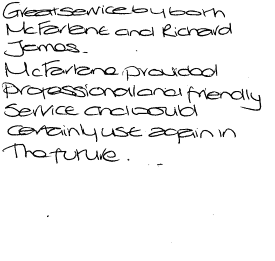 Great service by both
McFarlane and Richard
James.
McFarlane provided
Professional and friendly
Service and would
certainly use again in
The future.